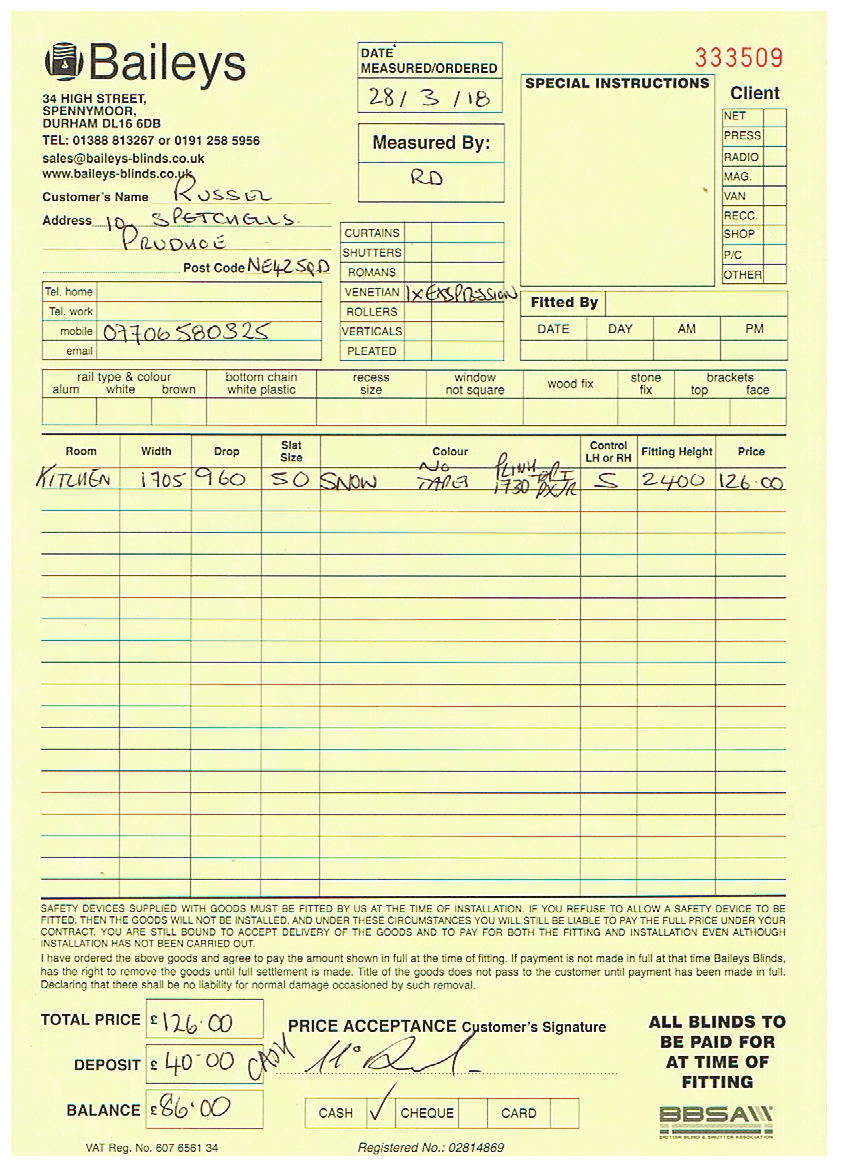 Baileys
34 HIGH STREET,
SPENNYMOOR,
DURHAM DL16 6DB
TEL: 01388 813267 or 0191 258 5956
sales@baileys-blinds.co.uk
www.baileys-blinds.co.uk
Customer's Name RUSSEL
Address 10 SPETCHELLS.
PRUDHOE
Post Code NE42 5QD
Tel. home
Tel. work
mobile 07706580325
email
DATE
MEASURED/ORDERED
28/3/18
Measured By:
RD
CURTAINS
SHUTTERS
ROMANS
VENETIAN 1x EXSPRESSION
ROLLERS
VERTICALS
PLEATED
SPECIAL INSTRUCTIONS
333509
Client
NET
PRESS
RADIO
MAG.
VAN
RECC.
SHOP
P/C
OTHER
Fitted By
DATE DAY AM PM
rail type & colour
alum white brown
bottom chain
white plastic
recess
size
window
not square
wood fix
stone
fix
brackets
top face
Room Width Drop Slat Size Colour Control LH or RH Fitting Height Price
KITCHEN 1705 960 50 SNOW NO TAPES 1730 S 2400 126.00
SAFETY DEVICES SUPPLIED WITH GOODS MUST BE FITTED BY US AT THE TIME OF INSTALLATION. IF YOU REFUSE TO ALLOW A SAFETY DEVICE TO BE
FITTED, THEN THE GOODS WILL NOT BE INSTALLED, AND UNDER THESE CIRCUMSTANCES YOU WILL STILL BE LIABLE TO PAY THE FULL PRICE UNDER YOUR
CONTRACT. YOU ARE STILL BOUND TO ACCEPT DELIVERY OF THE GOODS AND TO PAY FOR BOTH THE FITTING AND INSTALLATION EVEN ALTHOUGH
INSTALLATION HAS NOT BEEN CARRIED OUT.
I have ordered the above goods and agree to pay the amount shown in full at the time of fitting. If payment is not made in full at that time Baileys Blinds,
has the right to remove the goods until full settlement is made. Title of the goods does not pass to the customer until payment has been made in full.
Declaring that there shall be no liability for normal damage occasioned by such removal.
TOTAL PRICE £126.00
DEPOSIT £40.00 CASH
BALANCE £86.00
PRICE ACCEPTANCE Customer's Signature
CASH ✓ CHEQUE CARD
ALL BLINDS TO
BE PAID FOR
AT TIME OF
FITTING
BBSA
BRITISH BLIND & SHUTTER ASSOCIATION
VAT Reg. No. 607 6561 34
Registered No.: 02814869